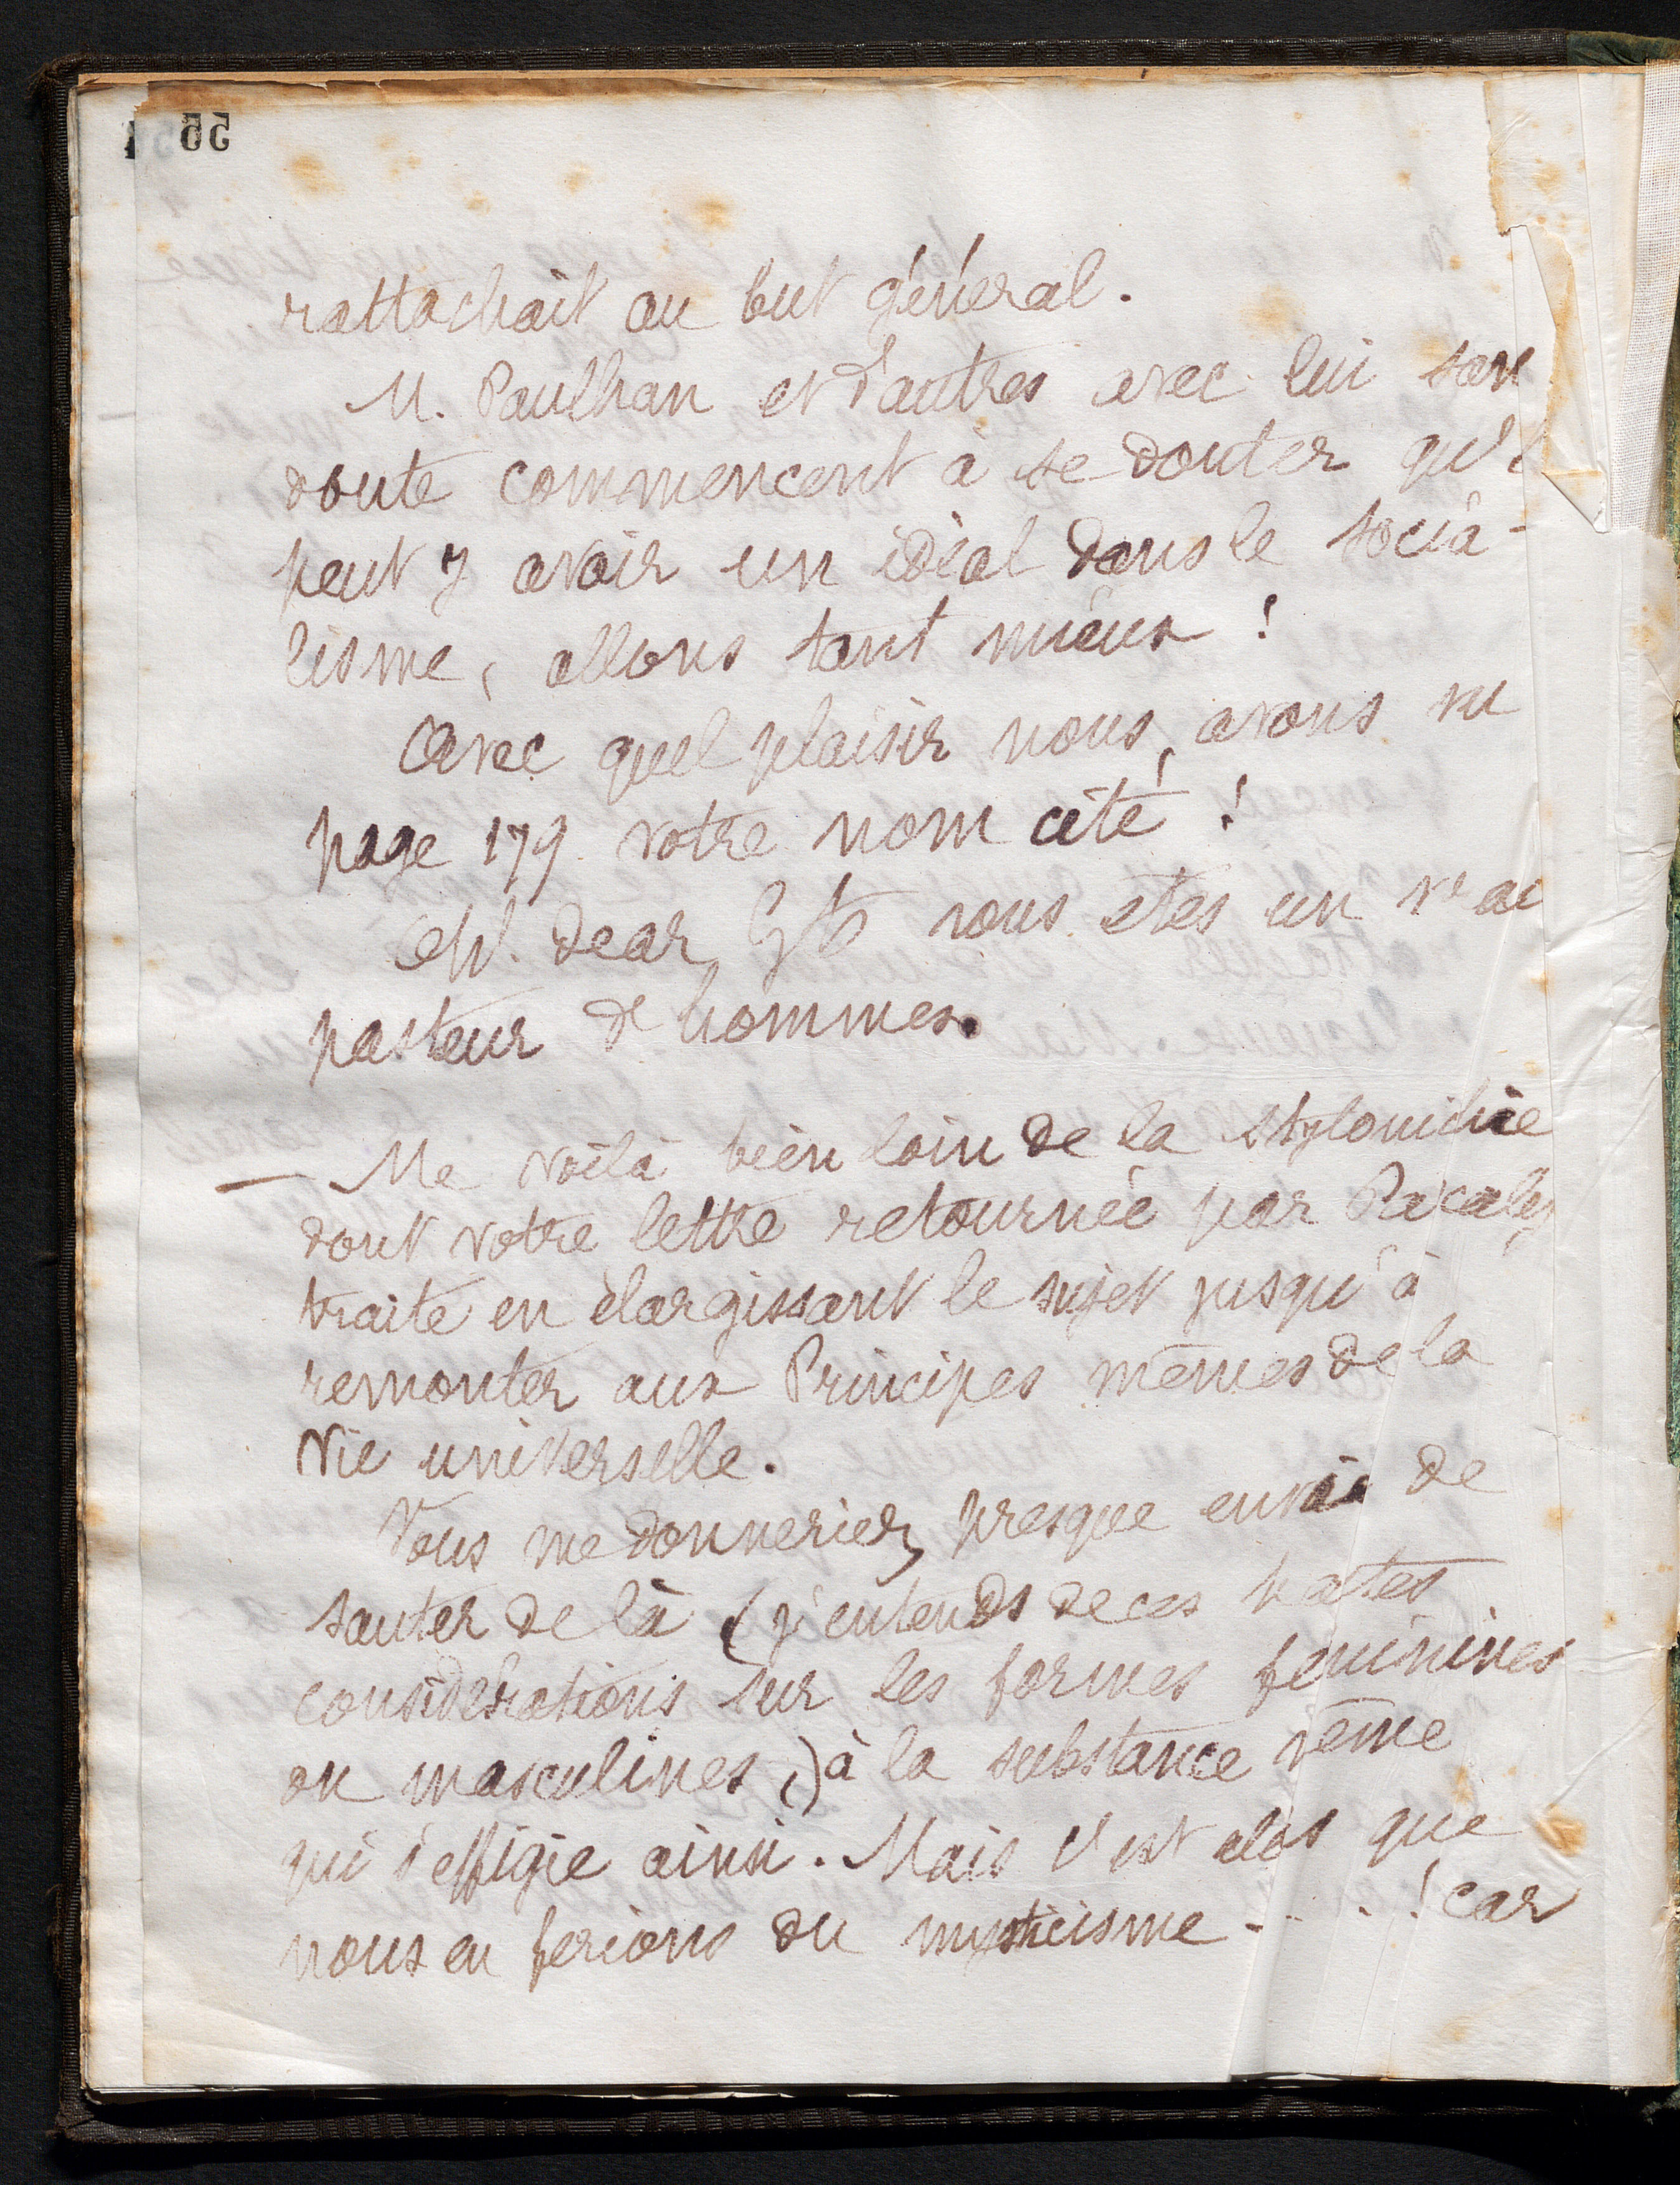 55
rattachait au but général.
M. Paulhan et d'autres avec lui san
doute commencent à se douter qu'
peut y avoir un idéal dans le socia-
lisme, allons tant mieux !
Avec quel plaisir nous avons vu
page 179 votre nom cité !
Oh. dear vous êtes un vrai
pasteur d'hommes.
— Me voilà bien loin de la
dont votre lettre retournée par Pascaly
traite en élargissant le sujet jusqu'à
remonter aux Principes mêmes de la
Vie universelle.
Vous me donneriez presque envie de
sauter de là (j'entends de ces hautes
considérations sur les formes féminines
ou masculines,) à la substance même
qui s'effigie ainsi. Mais c'est alors que
nous en ferions du mysticisme - . . . ! car